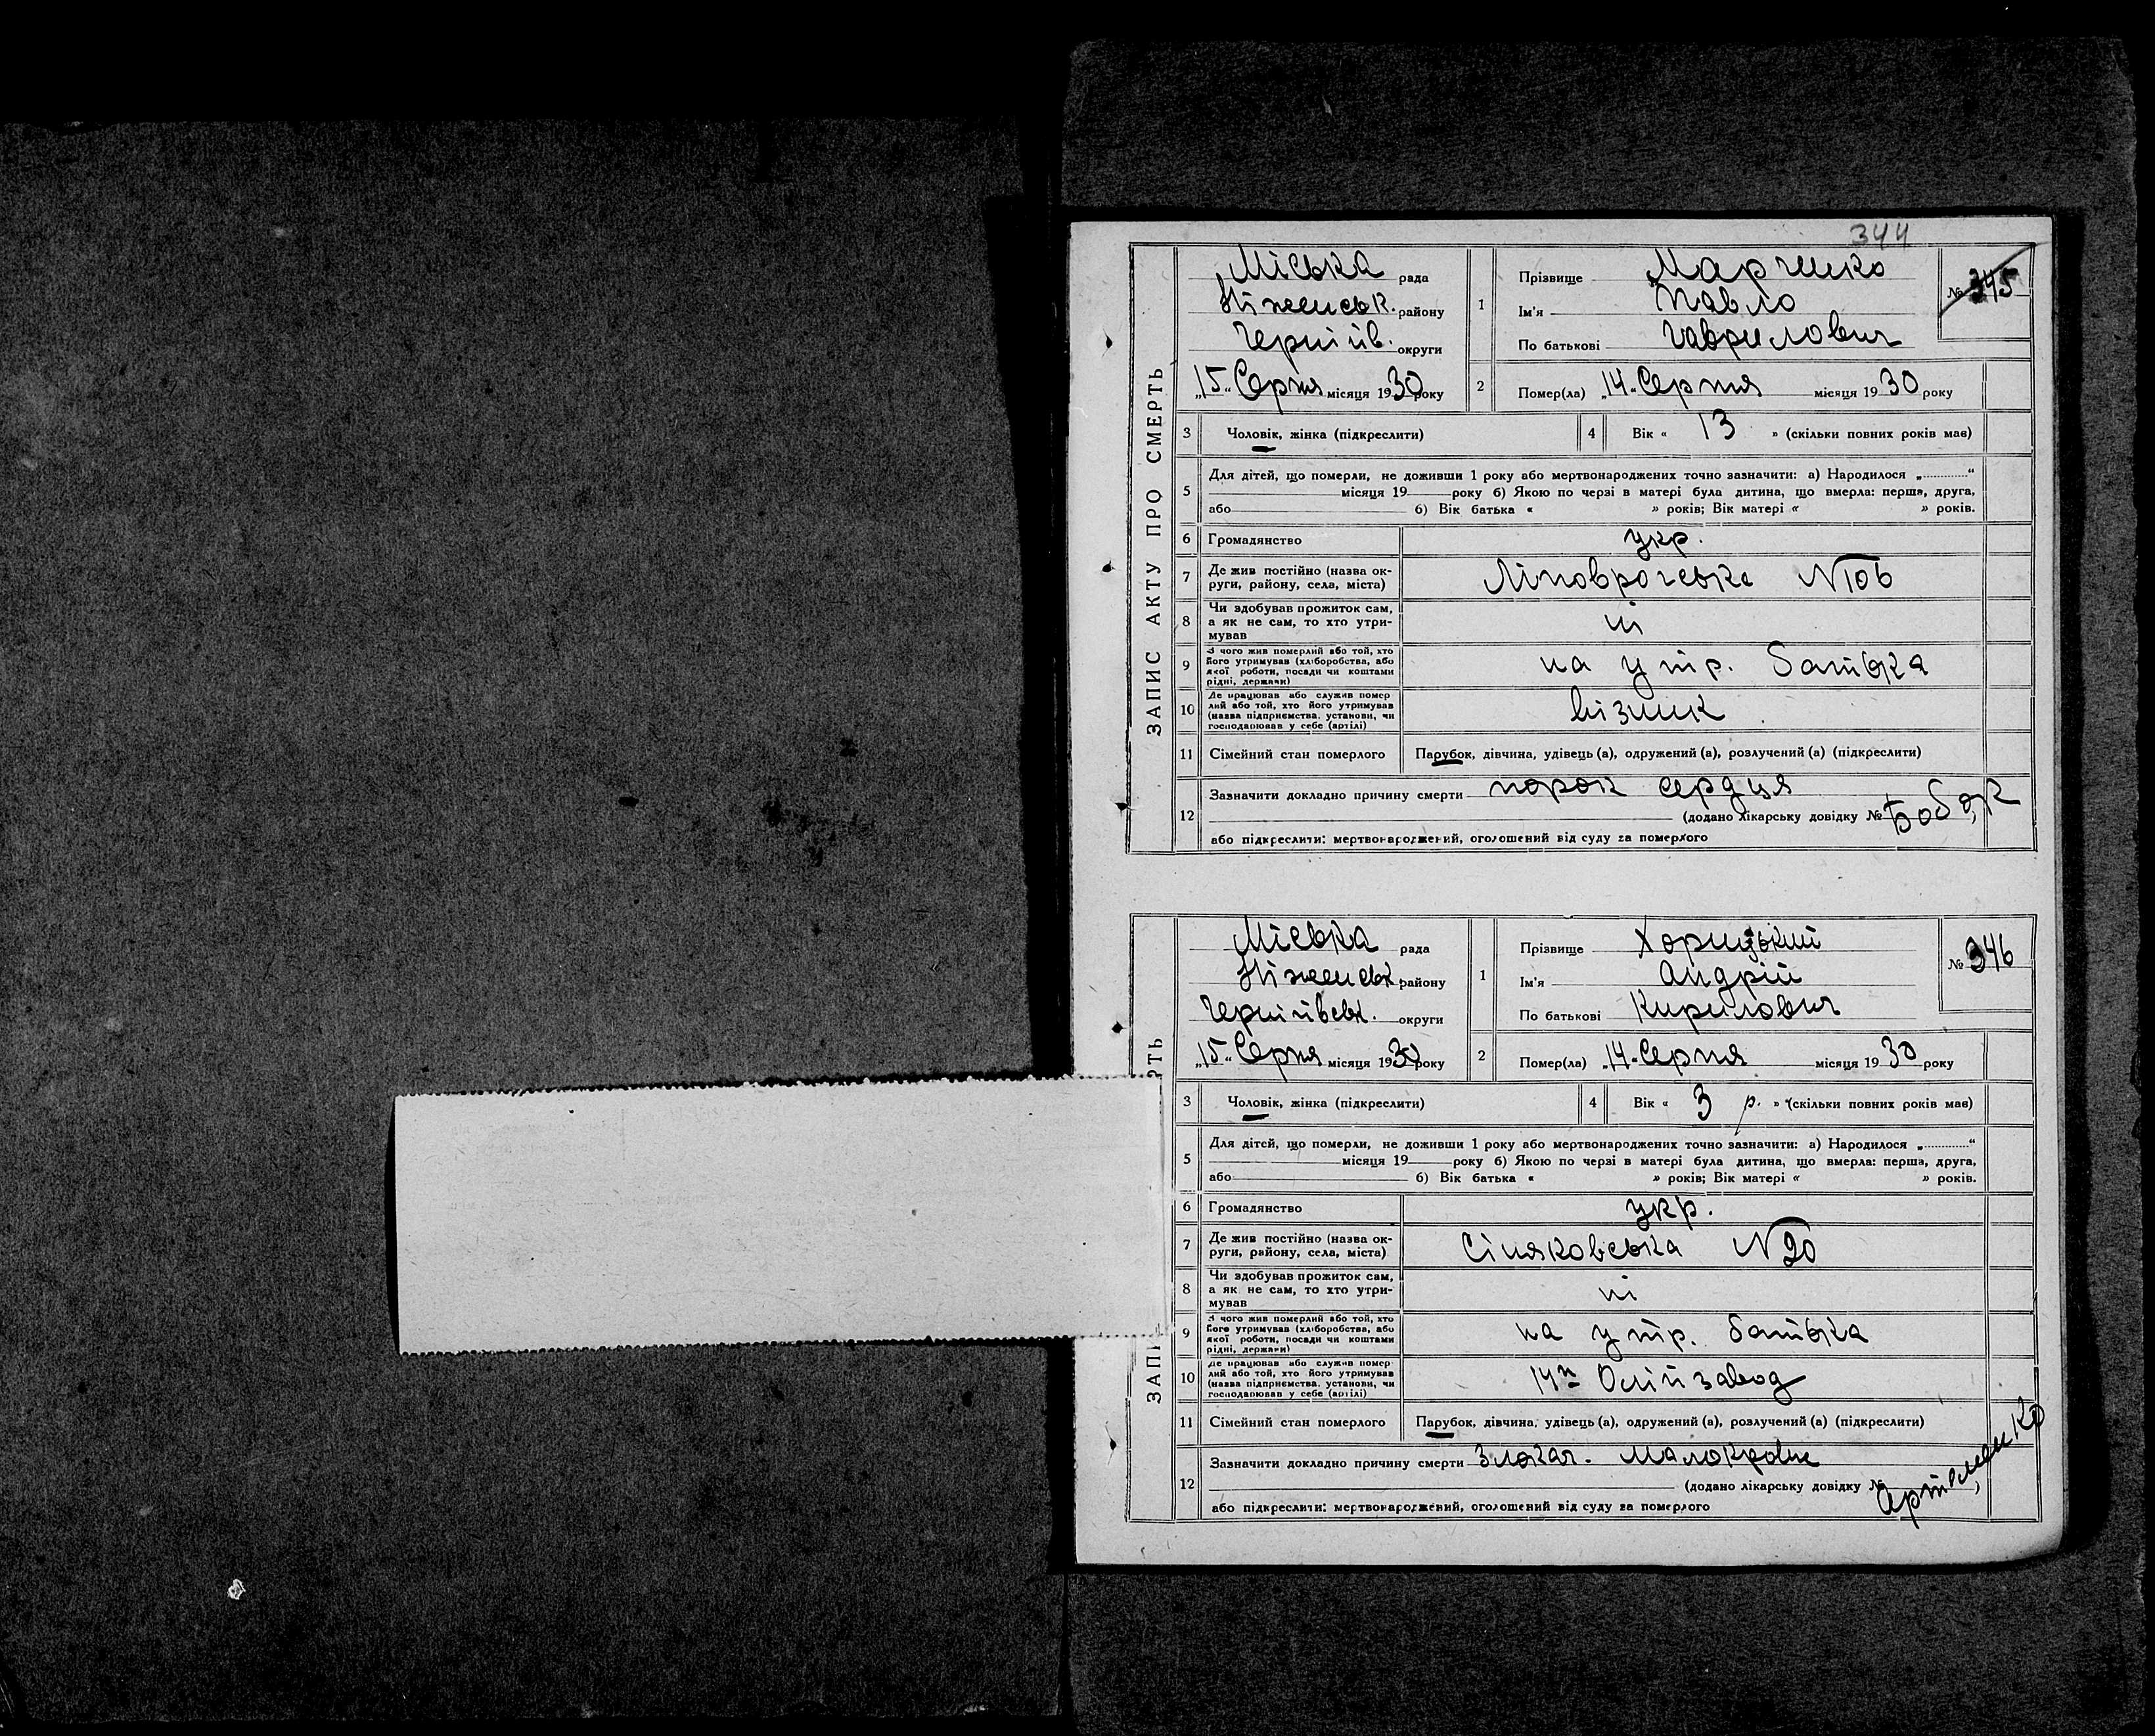 344
ЗАПИС АКТУ ПРО СМЕРТЬ
Міська рада
Ніженськ. району
Черніив. округи
„15“ Серпня місяця 1930 року
1
Прізвище Марченко
Ім'я Павло
По батькові Гаврилович
№ 345
2
Помер(ла) „14“ Серпня місяця 1930 року
3 Чоловік, жінка (підкреслити)
4 Вік « 13 » (скільки повних років має)
5 Для дітей, що померли, не доживши 1 року або мертвонароджених точно зазначити: а) Народилося „............“
місяця 19 року б) Якою по черзі в матері була дитина, що вмерла: перша, друга,
або б) Вік батька « » років; Вік матері « » років.
6 Громадянство укр.
7 Де жив постійно (назва ок-
руги, району, села, міста) №
8 Чи здобував прожиток сам,
а як не сам, то хто утри-
мував ні
9 З чого жив померлий або той, хто
його утримував (хліборобства, або
якої роботи, посади чи коштами
рідні, держави) на утр. батька
10 Де працював або служив помер
лий або той, хто його утримував
(назва підприємства, установи, чи
господарював у себе (артілі) візник
11 Сімейний стан померлого Парубок, дівчина, удівець (а), одружений (а), розлучений (а) (підкреслити)
12 Зазначити докладно причину смерти порок сердця
(додано лікарську довідку №
або підкреслити: мертвонароджений, оголошений від суду за померлого
Міська рада
Ніженськ району
Чернігівськ. округи
„15“ Серпня місяця 1930 року
1
Прізвище
Ім'я Андрій
По батькові Кирилович
№ 346
2
Помер(ла) „14“ Серпня місяця 1930 року
3 Чоловік, жінка (підкреслити)
4 Вік « 3 р. » (скільки повних років має)
5 Для дітей, що померли, не доживши 1 року або мертвонароджених точно зазначити: а) Народилося „............“
місяця 19 року б) Якою по черзі в матері була дитина, що вмерла: перша, друга,
або б) Вік батька « » років; Вік матері « » років.
6 Громадянство укр.
7 Де жив постійно (назва ок-
руги, району, села, міста) Сіняковська № 20
8 Чи здобував прожиток сам,
а як не сам, то хто утри-
мував ні
9 З чого жив померлий або той, хто
його утримував (хліборобства, або
якої роботи, посади чи коштами
рідні, держави) на утр. батька
10 Де працював або служив помер
лий або той, хто його утримував
(назва підприємства, установи, чи
господарював у себе (артілі) Олійзавод
11 Сімейний стан померлого Парубок, дівчина, удівець (а), одружений (а), розлучений (а) (підкреслити)
12 Зазначити докладно причину смерти Злокач. Малокровіє
(додано лікарську довідку № Артеменко
або підкреслити: мертвонароджений, оголошений від суду за померлого